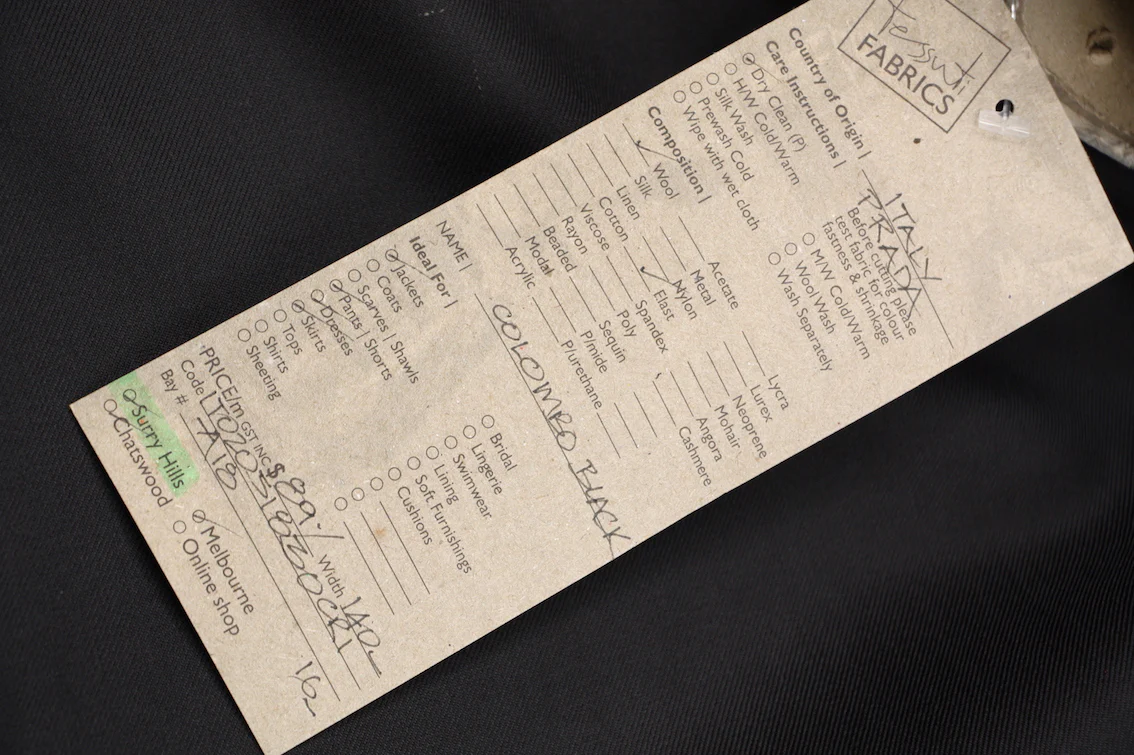 Tessuti
FABRICS
Country of Origin | ITALY
PRADA
Care Instructions |
Before cutting please
test fabric for colour
fastness & shrinkage
Dry Clean (P)
H/W Cold/Warm
Silk Wash
Prewash Cold
Wipe with wet cloth
M/W Cold/Warm
Wool Wash
Wash Separately
Composition |
Wool
Silk
Linen
Cotton
Viscose
Rayon
Beaded
Modal
Acrylic
Acetate
Metal
Nylon
Elast
Spandex
Poly
Sequin
P/mide
P/urethane
Lycra
Lurex
Neoprene
Mohair
Angora
Cashmere
NAME | COLOMBO BLACK
Ideal For |
Jackets
Coats
Scarves | Shawls
Pants | Shorts
Dresses
Skirts
Tops
Shirts
Sheeting
Bridal
Lingerie
Swimwear
Lining
Soft Furnishings
Cushions
PRICE/m GST INC $89 Width 140
Code
Bay # A18
Surry Hills
Chatswood
Melbourne
Online shop